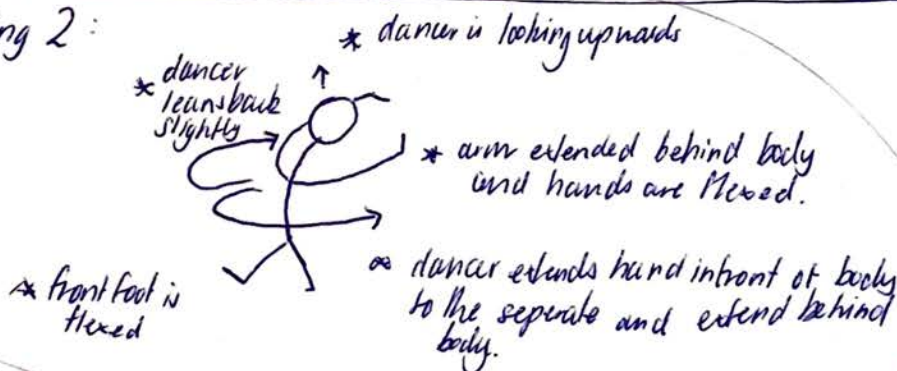 ng 2 :
* dancer is looking upwards
* dancer
leans back
slightly
* arm extended behind body
and hands are flexed.
* front foot is
flexed
* dancer extends hand infront of body
to the seperate and extend behind
body.